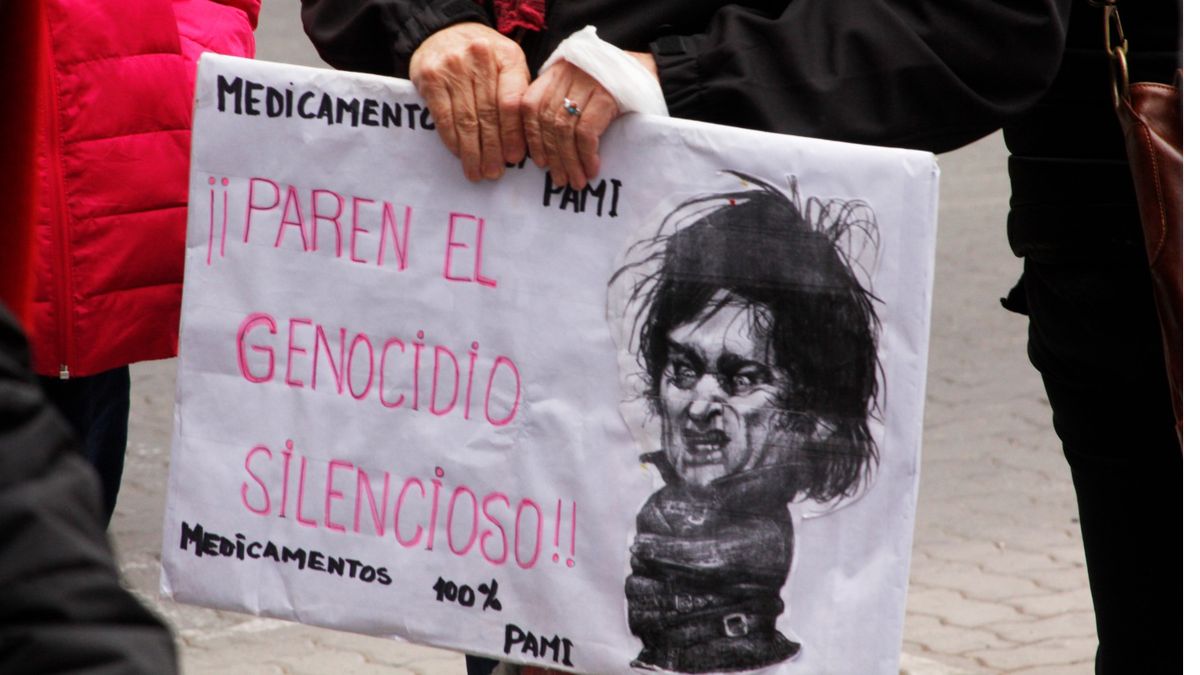 MEDICAMENTO
PAMI
¡¡PAREN EL
GENOCIDIO
SILENCIOSO!!
MEDICAMENTOS 100%
PAMI